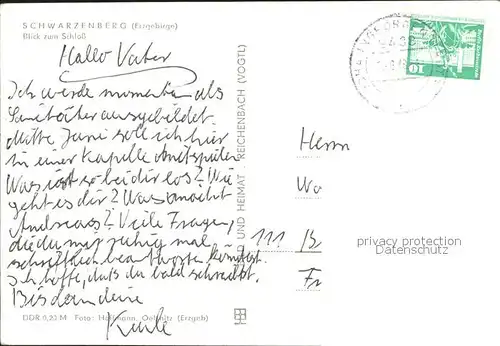 SCHWARZENBERG (Erzgebirge)
Blick zum Schloß
Hallo Vater
Ich werde momentan als
Sanitäter ausgebildet.
Mitte Juni soll ich hier
in einer Kapelle mitspielen
Was ist so bei dir los? Wie
geht es dir? Was macht
Andreas? Viele Fragen,
die du mir ruhig mal
schriftlich beantworten könntest.
Ich hoffe, daß du bald schreibst.
Bis dann deine
Kurle
DDR 0,20 M Foto: Hoffmann, Oelsnitz (Erzgeb)
UND HEIMAT REICHENBACH (VOGTL)
111
10
Herrn
Wo
B
Fr
privacy protection
Datenschutz